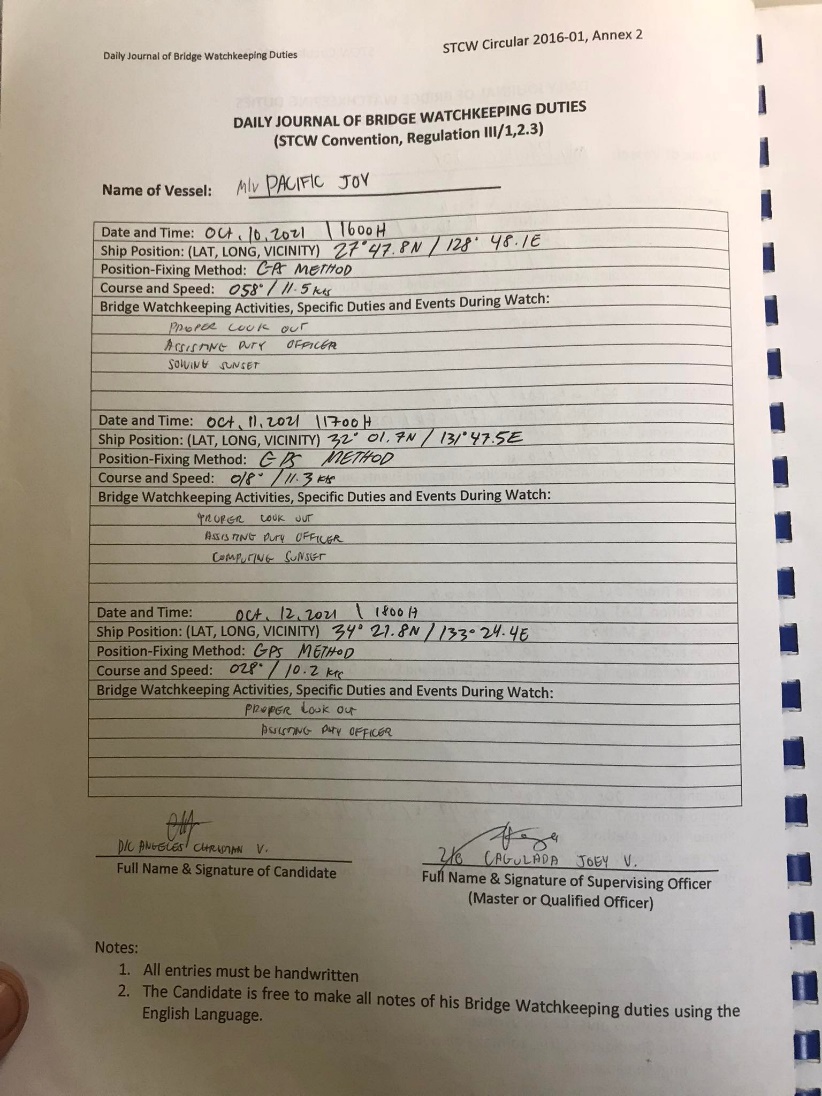 Daily Journal of Bridge Watchkeeping Duties
STCW Circular 2016-01, Annex 2
DAILY JOURNAL OF BRIDGE WATCHKEEPING DUTIES
(STCW Convention, Regulation III/1,2.3)
Name of Vessel: M/V PACIFIC JOY
Date and Time: Oct. 10, 2021 \ 1600 H
Ship Position: (LAT, LONG, VICINITY) 27° 47.8N / 128° 48.1E
Position-Fixing Method: GPS METHOD
Course and Speed: 058° / 11.5 kts
Bridge Watchkeeping Activities, Specific Duties and Events During Watch:
PROPER LOOK OUT
ASSISTING DUTY OFFICER
SOLVING SUNSET
Date and Time: Oct. 11, 2021 \ 1700 H
Ship Position: (LAT, LONG, VICINITY) 32° 01.7N / 131° 47.5E
Position-Fixing Method: GPS METHOD
Course and Speed: 018° / 11.3 kts
Bridge Watchkeeping Activities, Specific Duties and Events During Watch:
PROPER LOOK OUT
ASSISTING DUTY OFFICER
COMPUTING SUNSET
Date and Time: Oct. 12, 2021 \ 1800 H
Ship Position: (LAT, LONG, VICINITY) 34° 21.8N / 133° 24.4E
Position-Fixing Method: GPS METHOD
Course and Speed: 028° / 10.2 kts
Bridge Watchkeeping Activities, Specific Duties and Events During Watch:
PROPER LOOK OUT
ASSISTING DUTY OFFICER
D/C ANGELES CHRISTIAN V.
Full Name & Signature of Candidate
2/O CAGULADA JOEY V.
Full Name & Signature of Supervising Officer
(Master or Qualified Officer)
Notes:
1. All entries must be handwritten
2. The Candidate is free to make all notes of his Bridge Watchkeeping duties using the
English Language.